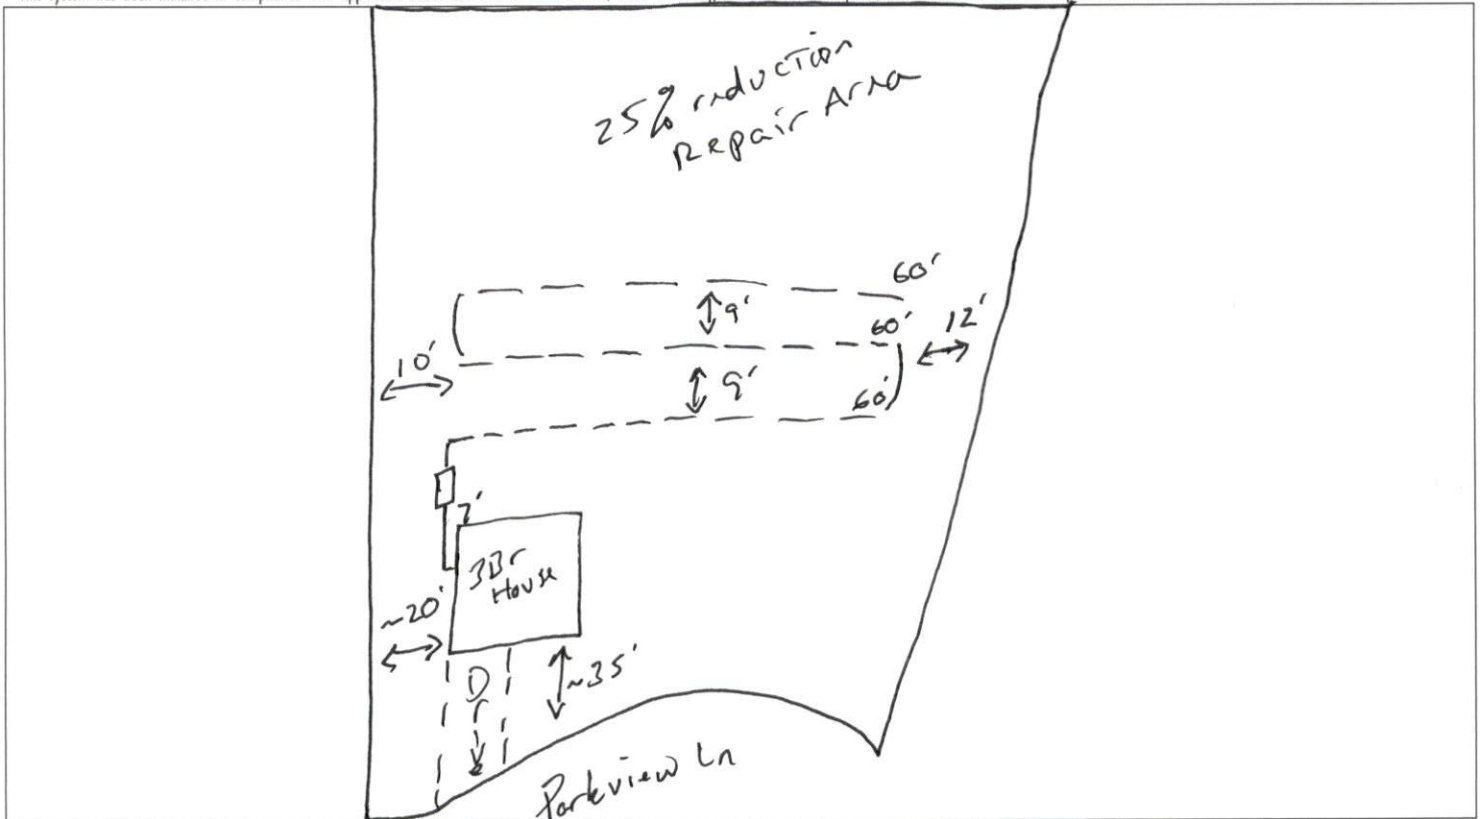 25% reduction
Repair Area
60'
9'
60'
12'
10'
9'
60'
7'
3Br
House
~20'
~35'
Dr
Parkview Ln